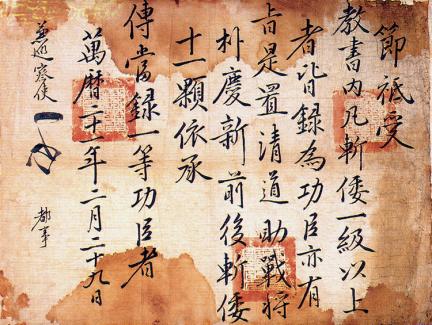 節祗受
教書內凡斬倭一級以上
者皆錄為功臣亦有
旨是置清道助戰將
朴慶新前後斬倭
十一顆依承
傳當録一等功臣者
萬曆二十一年二月二十九日
兼巡察使
都事